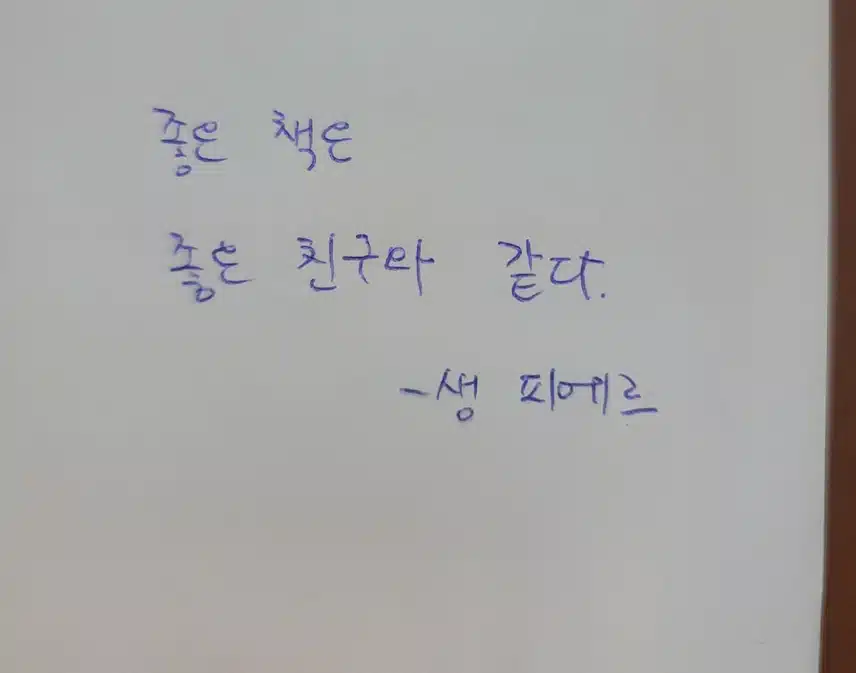 좋은 책은
좋은 친구와 같다.
-생 피에르